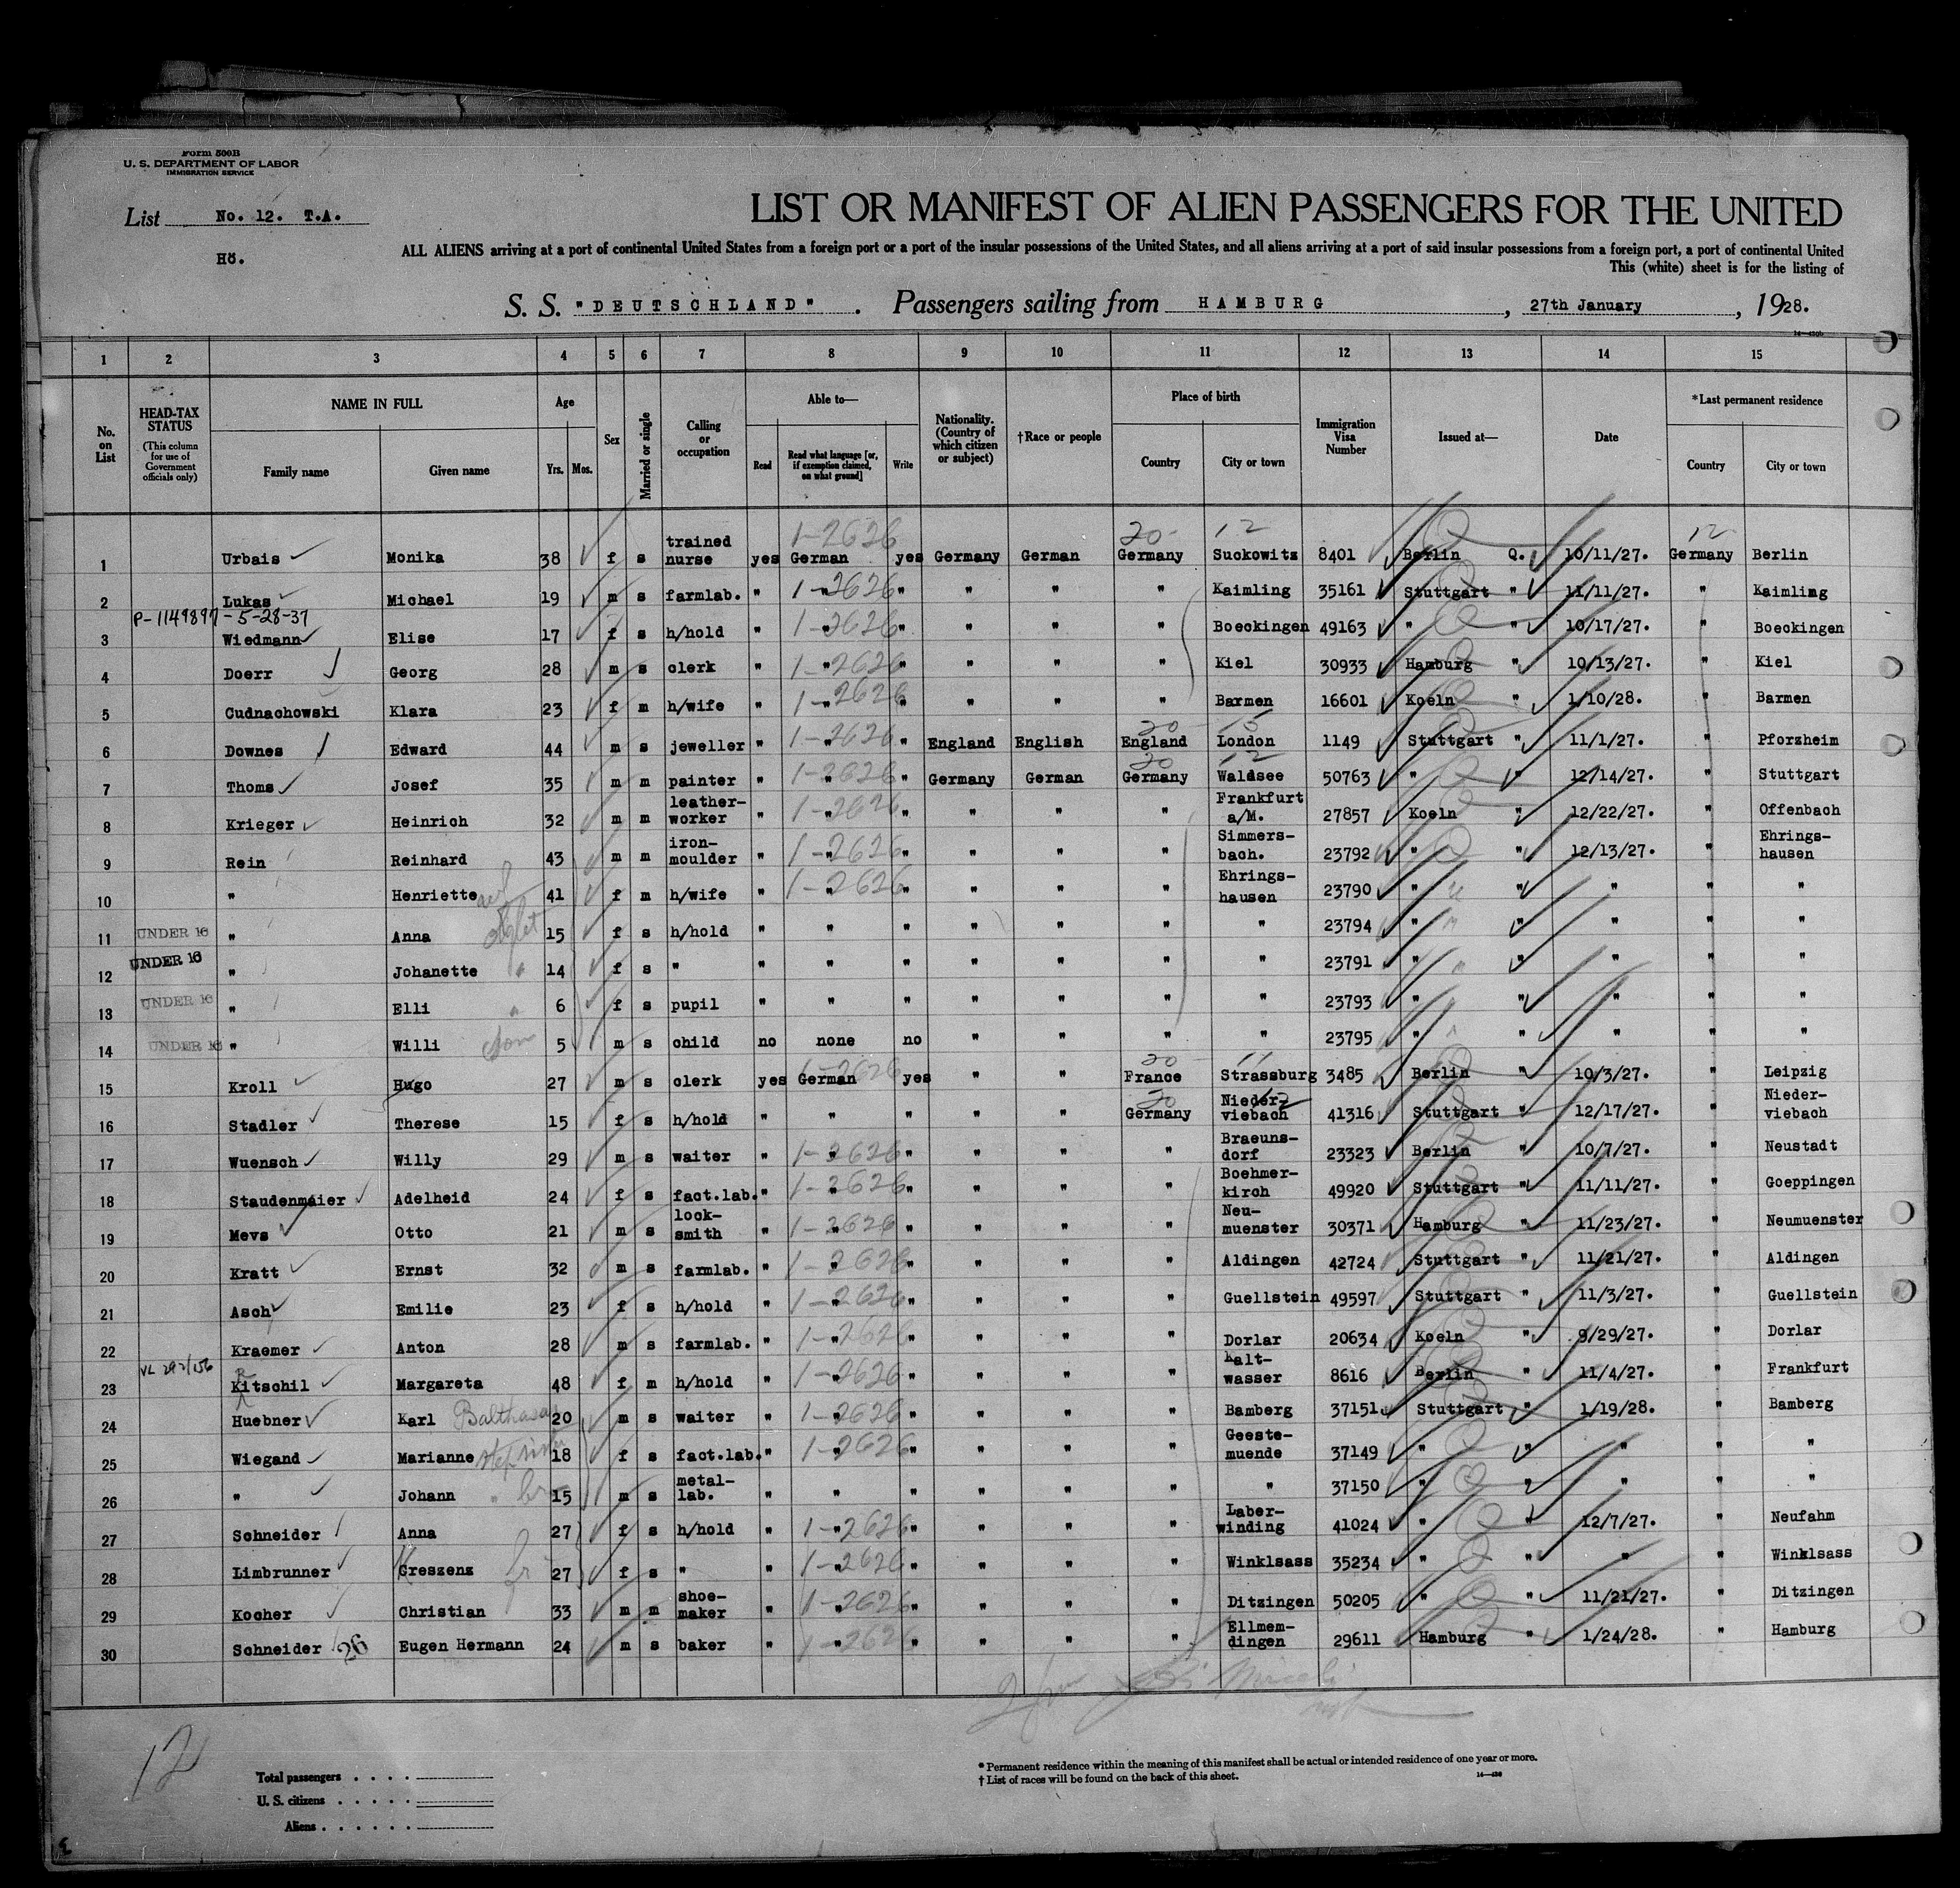 Form 500B
U. S. DEPARTMENT OF LABOR
IMMIGRATION SERVICE
List No. 12. T.A.
Hö.
LIST OR MANIFEST OF ALIEN PASSENGERS FOR THE UNITED
ALL ALIENS arriving at a port of continental United States from a foreign port or a port of the insular possessions of the United States, and all aliens arriving at a port of said insular possessions from a foreign port, a port of continental United
This (white) sheet is for the listing of
S. S. "DEUTSCHLAND". Passengers sailing from HAMBURG, 27th January, 1928.
1 2 3 4 5 6 7 8 9 10 11 12 13 14 15
No. on List
HEAD-TAX STATUS (This column for use of Government officials only)
NAME IN FULL
Family name Given name
Age
Yrs. Mos.
Sex
Married or single
Calling or occupation
Able to—
Read
Read what language [or, if exemption claimed, on what ground]
Write
Nationality. (Country of which citizen or subject)
†Race or people
Place of birth
Country City or town
Immigration Visa Number
Issued at—
Date
*Last permanent residence
Country City or town
1 Urbais Monika 38 f s trained nurse yes German 1-2626 yes Germany German 20 Germany 12 Suckowitz 8401 Berlin Q. 10/11/27. 12 Germany Berlin
2 Lukas Michael 19 m s farmlab. " " 1-2626 " " " " Kaimling 35161 Stuttgart " 11/11/27. " Kaimling
P-1149897-5-28-37
3 Wiedmann Elise 17 f s h/hold " " 1-2626 " " " " Boeckingen 49163 " " 10/17/27. " Boeckingen
4 Doerr Georg 28 m s clerk " " 1-2626 " " " " Kiel 30933 Hamburg " 10/13/27. " Kiel
5 Cudnachowski Klara 23 f m h/wife " " 1-2626 " " " " Barmen 16601 Koeln " 1/10/28. " Barmen
6 Downes Edward 44 m s jeweller " " 1-2626 " England English 20 England 15 London 1149 Stuttgart " 11/1/27. " Pforzheim
7 Thoms Josef 35 m m painter " " 1-2626 " Germany German 20 Germany 12 Waldsee 50763 " " 12/14/27. " Stuttgart
8 Krieger Heinrich 32 m m leather-worker " " 1-2626 " " " " Frankfurt a/M. 27857 Koeln " 12/22/27. " Offenbach
9 Rein Reinhard 43 m m iron-moulder " " 1-2626 " " " " Simmers-bach. 23792 " " 12/13/27. " Ehrings-hausen
10 " Henriette 41 f m h/wife " " 1-2626 " " " " Ehrings-hausen 23790 " " " " "
11 UNDER 16 " Anna 15 f s h/hold " " " " " " " 23794 " " " " "
12 UNDER 16 " Johanette 14 f s " " " " " " " " 23791 " " " " "
13 UNDER 16 " Elli 6 f s pupil " " " " " " " 23793 " " " " "
14 UNDER 16 " Willi 5 m s child no none no " " " " 23795 " " " " "
15 Kroll Hugo 27 m s clerk yes German 1-2626 yes " " 20 France 11 Strassburg 3485 Berlin " 10/3/27. " Leipzig
16 Stadler Therese 15 f s h/hold " " " " " 20 Germany 12 Nieder-viebach 41316 Stuttgart " 12/17/27. " Nieder-viebach
17 Wuensch Willy 29 m s waiter " " 1-2626 " " " " Braeuns-dorf 23323 Berlin " 10/7/27. " Neustadt
18 Staudenmaier Adelheid 24 f s fact.lab. " " 1-2626 " " " " Boehmer-kirch 49920 Stuttgart " 11/11/27. " Goeppingen
19 Mevs Otto 21 m s lock-smith " " 1-2626 " " " " Neu-muenster 30371 Hamburg " 11/23/27. " Neumuenster
20 Kratt Ernst 32 m s farmlab. " " 1-2626 " " " " Aldingen 42724 Stuttgart " 11/21/27. " Aldingen
21 Asch Emilie 23 f s h/hold " " 1-2626 " " " " Guellstein 49597 Stuttgart " 11/3/27. " Guellstein
22 Kraemer Anton 28 m s farmlab. " " 1-2626 " " " " Dorlar 20634 Koeln " 9/29/27. " Dorlar
23 Kitschil Margareta 48 f m h/hold " " 1-2626 " " " " Kalt-wasser 8616 Berlin " 11/4/27. " Frankfurt
24 Huebner Karl Balthasar 20 m s waiter " " 1-2626 " " " " Bamberg 37151 Stuttgart " 1/19/28. " Bamberg
25 Wiegand Marianne 18 f s fact.lab. " " 1-2626 " " " " Geeste-muende 37149 " " " " "
26 " Johann 15 m s metal-lab. " " " " " " " 37150 " " " " "
27 Schneider Anna 27 f s h/hold " " 1-2626 " " " " Laber-winding 41024 " " 12/7/27. " Neufahm
28 Limbrunner Creszenz 27 f s " " " 1-2626 " " " " Winklsass 35234 " " " " Winklsass
29 Kocher Christian 33 m m shoe-maker " " 1-2626 " " " " Ditzingen 50205 " " 11/21/27. " Ditzingen
30 Schneider 26 Eugen Hermann 24 m s baker " " 1-2626 " " " " Ellmem-dingen 29611 Hamburg " 1/24/28. " Hamburg
12
Total passengers . . . .
U. S. citizens . . . . .
Aliens . . . . . .
* Permanent residence within the meaning of this manifest shall be actual or intended residence of one year or more.
† List of races will be found on the back of this sheet.